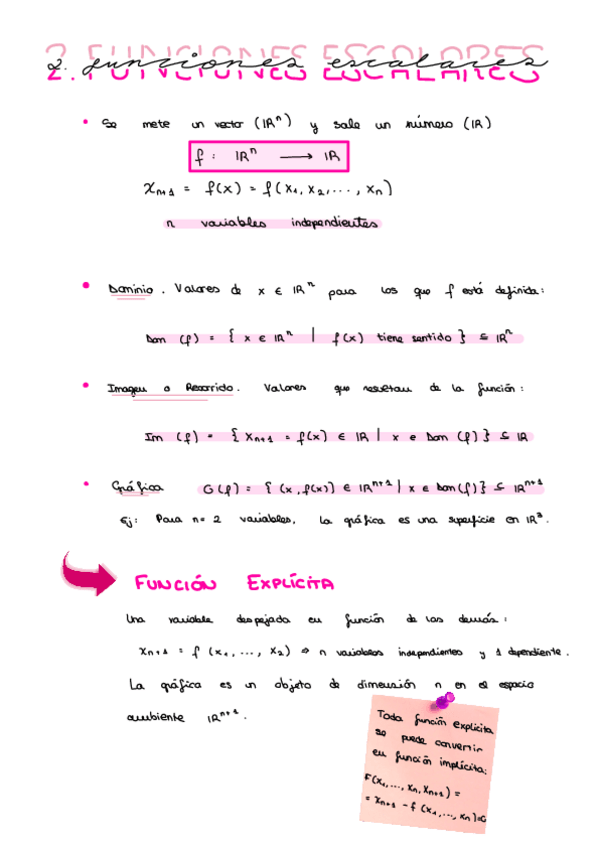 2. FUNCIONES ESCALARES
2. funciones escalares
• Se mete un vector (ℝⁿ) y sale un número (ℝ)
f: ℝⁿ ⟶ ℝ
xₙ₊₁ = f(x) = f(x₁, x₂, ..., xₙ)
n variables independientes
• Dominio. Valores de x ∈ ℝⁿ para los que f está definida:
Dom (f) = { x ∈ ℝⁿ | f(x) tiene sentido } ⊆ ℝⁿ
• Imagen o Recorrido. Valores que resultan de la función:
Im (f) = { xₙ₊₁ = f(x) ∈ ℝ | x ∈ Dom (f) } ⊆ ℝ
• Gráfica G(f) = { (x, f(x)) ∈ ℝⁿ⁺¹ | x ∈ Dom(f) } ⊆ ℝⁿ⁺¹
Ej: Para n= 2 variables, la gráfica es una superficie en ℝ³.
FUNCIÓN EXPLÍCITA
Una variable despejada en función de las demás:
xₙ₊₁ = f (x₁, ..., x₂) ⇒ n variables independientes y 1 dependiente.
La gráfica es un objeto de dimensión n en el espacio
ambiente ℝⁿ⁺¹.
Toda función explícita
se puede convertir
en función implícita:
F(x₁, ..., xₙ, xₙ₊₁) =
= xₙ₊₁ - f (x₁, ..., xₙ)=0